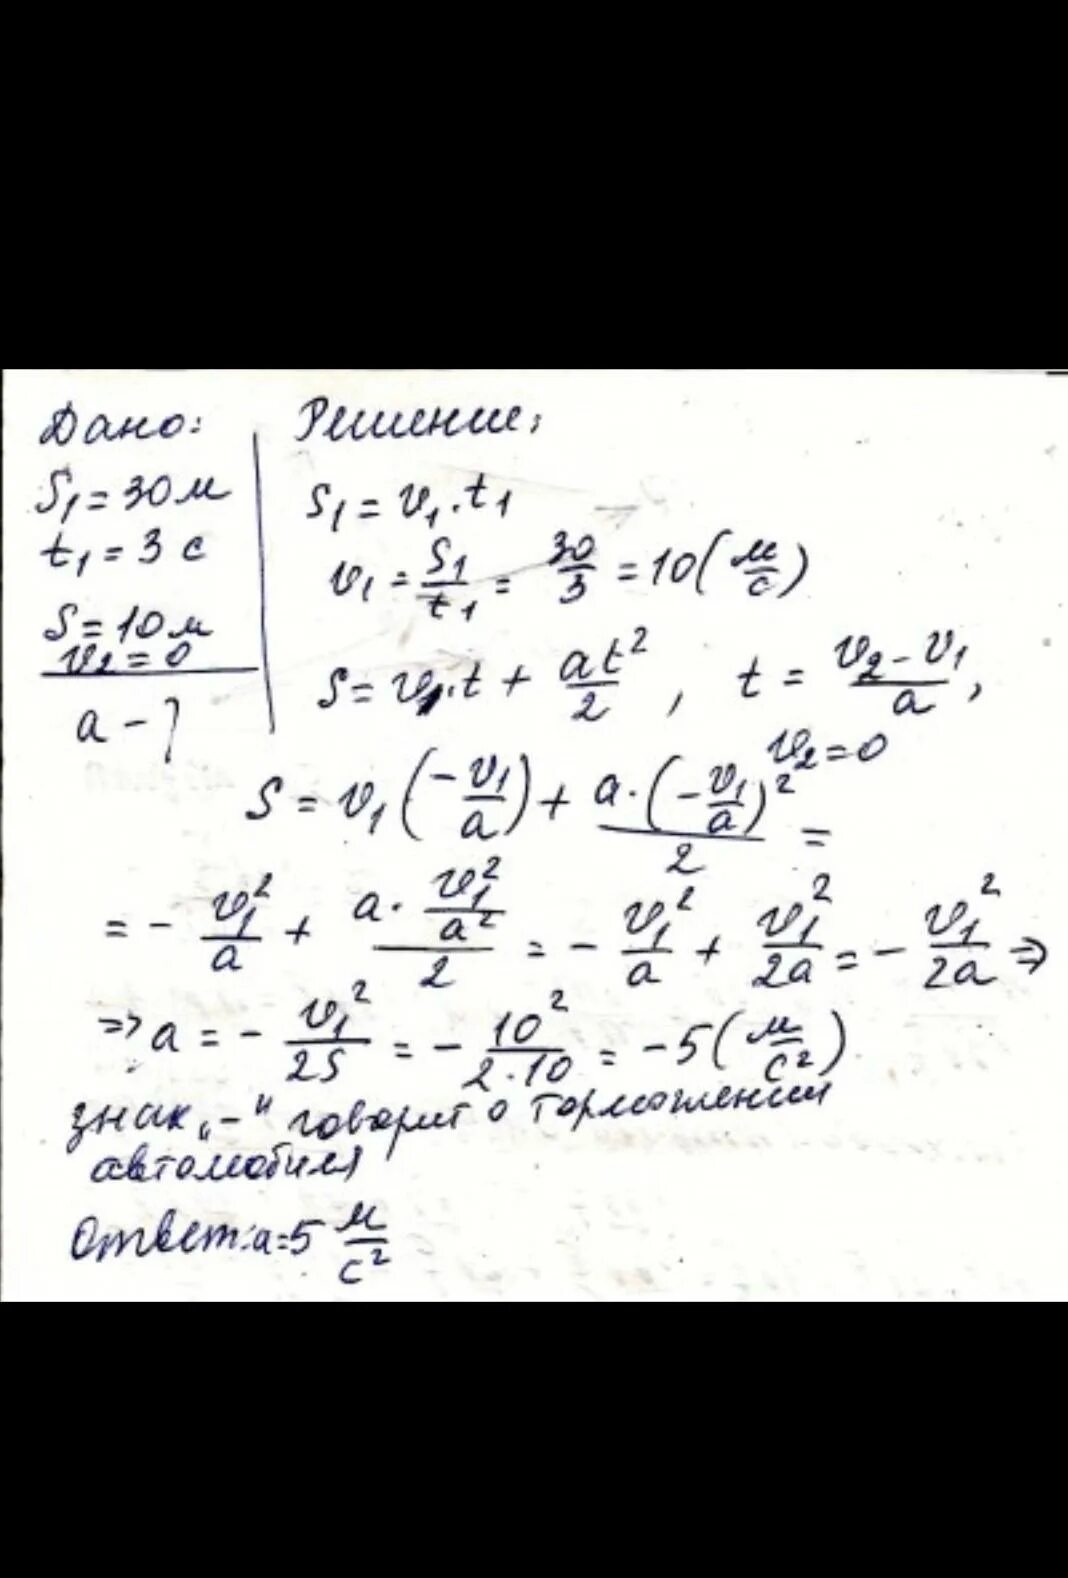 Дано:
S₁ = 30 м
t₁ = 3 с
S = 10 м
v₂ = 0
a - ?
Решение:
S₁ = v₁·t₁
v₁ = S₁/t₁ = 30/3 = 10 (м/с)
S = v₁·t + at²/2 , t = (v₂ - v₁)/a ,
v₂ = 0
S = v₁(-v₁/a) + a·(-v₁/a)²/2 =
= - v₁²/a + (a · v₁²/a²)/2 = - v₁²/a + v₁²/2a = - v₁²/2a ⇒
⇒ a = - v₁²/2S = - 10²/2·10 = -5 (м/с²)
знак „-" говорит о торможении
автомобиля
Ответ: a = 5 м/с²